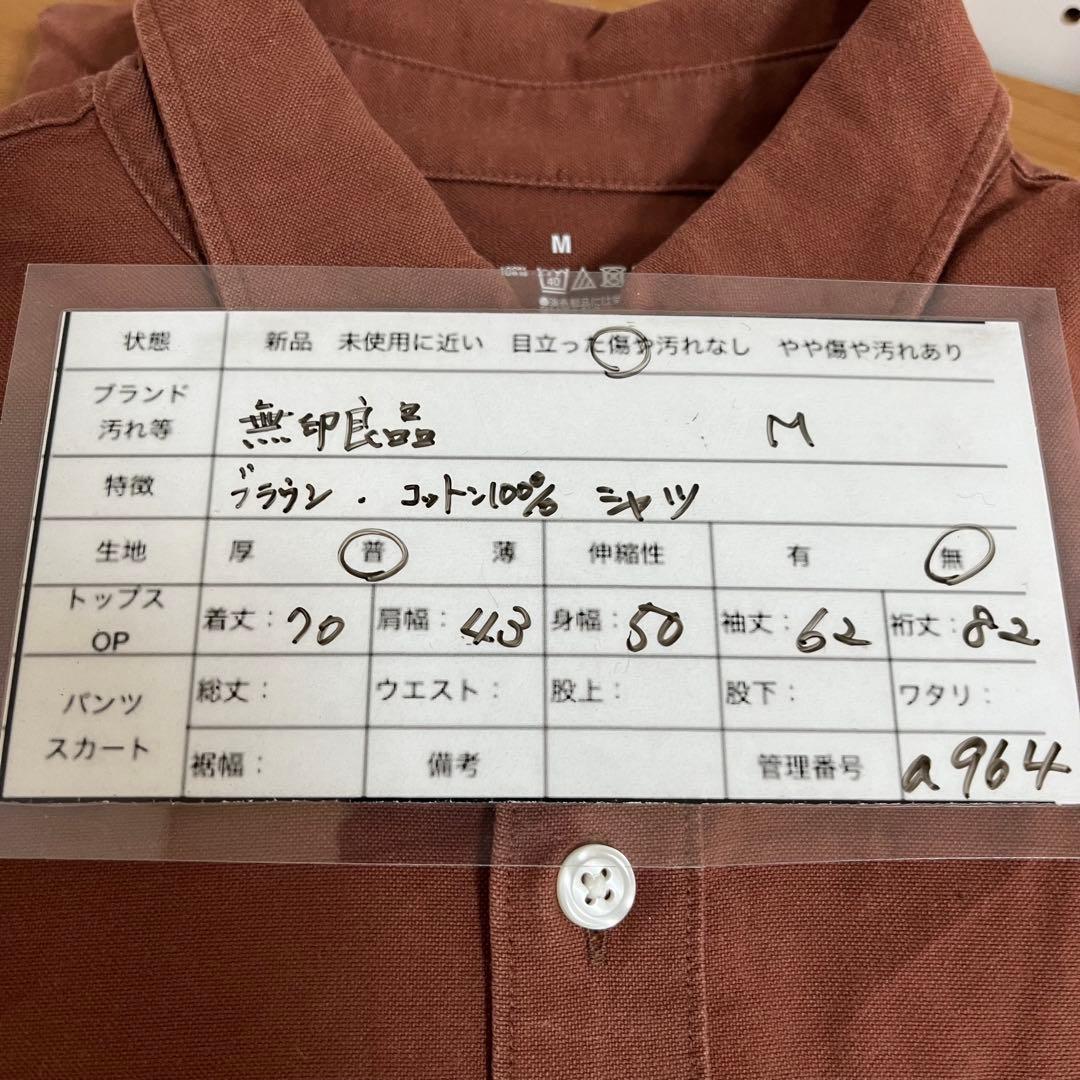 M
40
状態 新品 未使用に近い 目立った傷や汚れなし やや傷や汚れあり
ブランド
汚れ等 無印良品 M
特徴 ブラウン . コットン100% シャツ
生地 厚 普 薄 伸縮性 有 無
トップス
OP 着丈:70 肩幅:43 身幅:50 袖丈:62 裄丈:82
パンツ
スカート 総丈: ウエスト: 股上: 股下: ワタリ:
裾幅: 備考 管理番号 a964